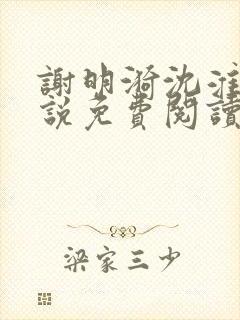 謝明漪沈淮
說免費閱讀
梁家三少